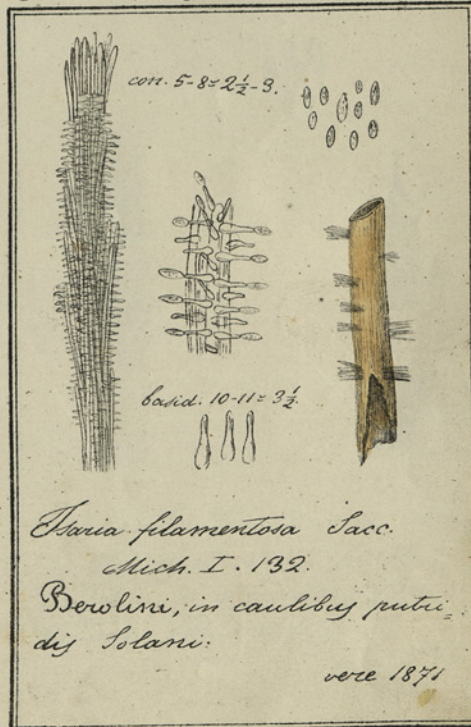 con. 5-8 = 2½-3.
basid. 10-11 = 3½.
Isaria filamentosa Sacc.
Mich. I. 132.
Berolini, in caulibus putri=
dis Solani.
vere 1871